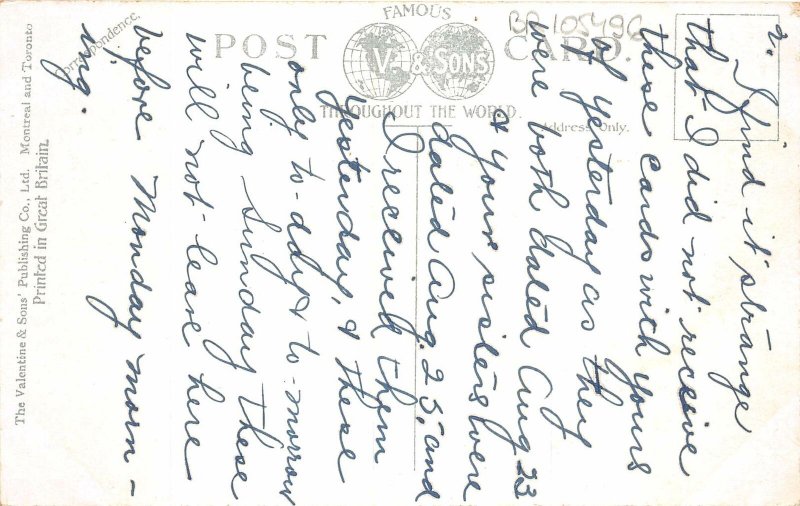 FAMOUS
POST CARD.
V. & SONS
THROUGHOUT THE WORLD.
Correspondence.
Address Only.
The Valentine & Sons' Publishing Co., Ltd. Montreal and Toronto
Printed in Great Britain.
BP 105496
2. I find it strange
that I did not receive
these cards with yours
of yesterday as they
were both dated Aug 23
& your sisters were
dated Aug. 25, and
I received them
yesterday, & these
only to-day & to-morrow
being Sunday these
will not leave here
before Monday morn-
ing.